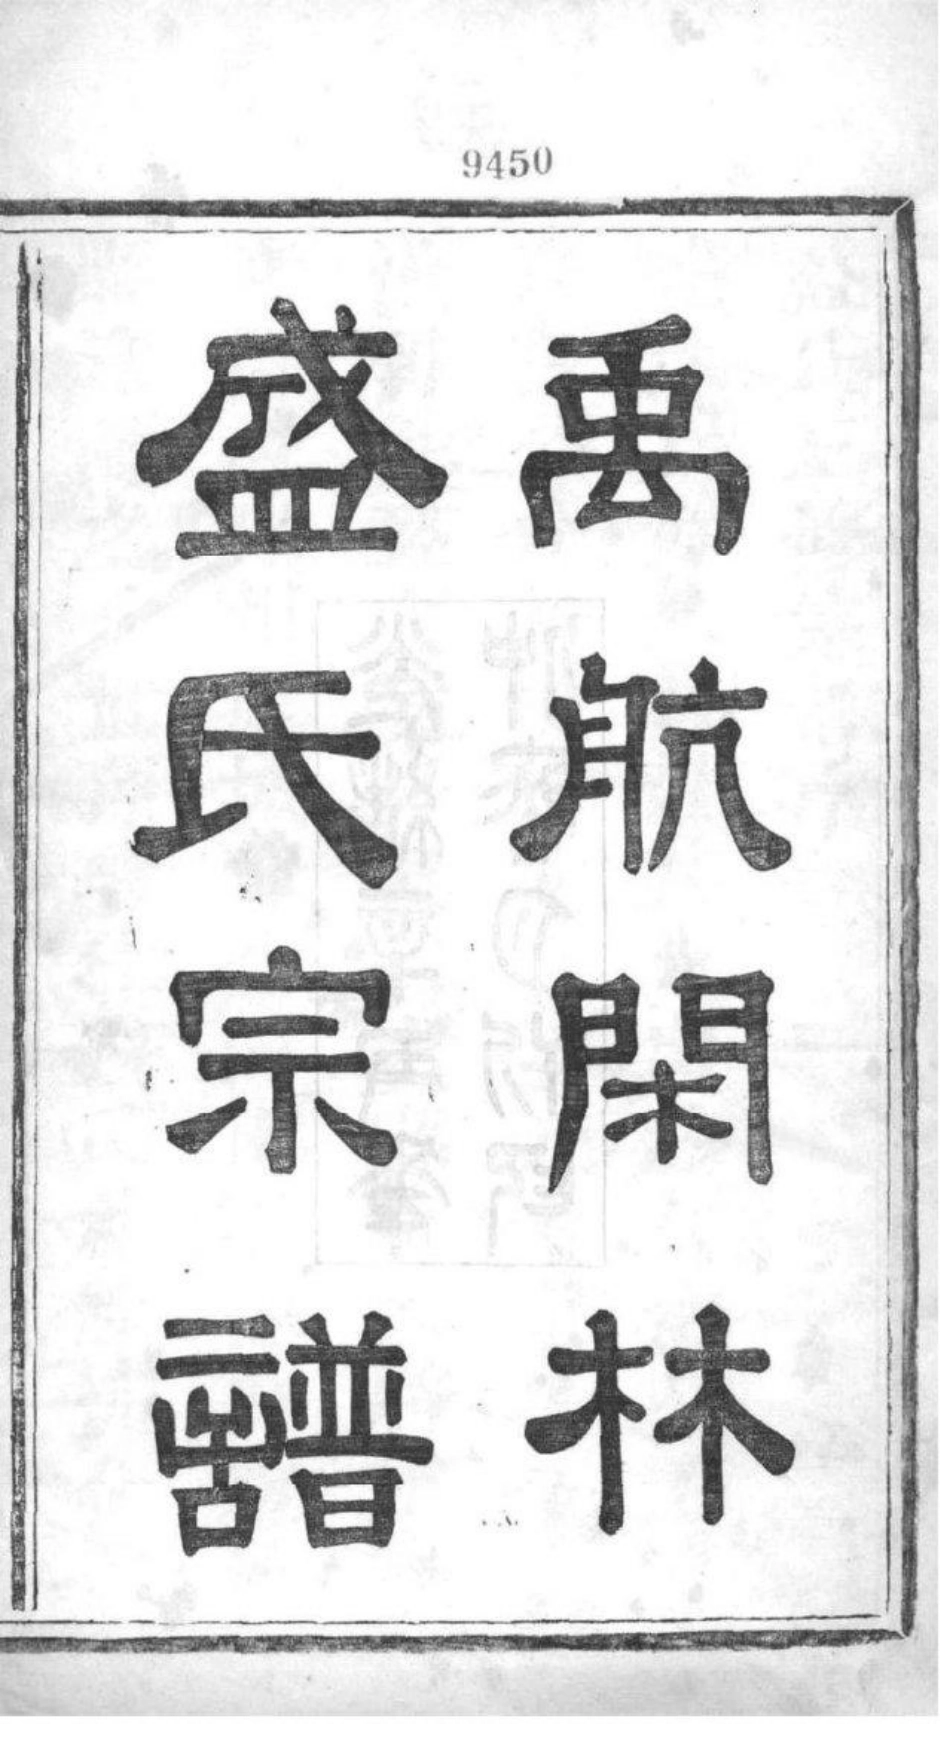 9450
禹航閑林
盛氏宗譜